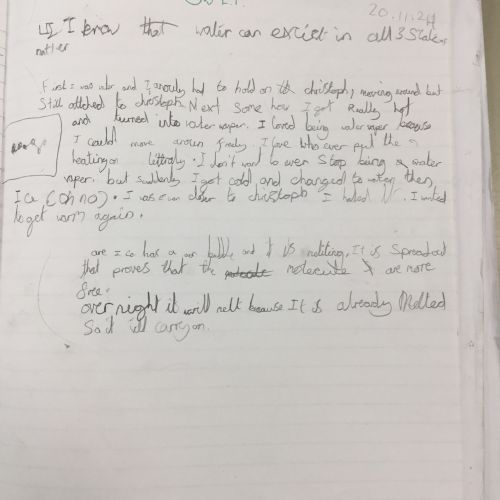 20.11.24
LI I know that water can excist in all 3 states
matter
First I was water and I anouly had to hold on to christoph, moving around but
Still attched to christoph. Next Some how I got Really hot
and turned into water vaper. I loved being water vaper because
I could move aroun freely. I love who ever put the
heating on littraly. I don't want to ever Stop being a water
vaper. but suddenly I got cold and changed to water then
Ice (Oh no). I was even closer to christoph I hated it. I wanted
to get warm again.
are Ice has a air bubble and it is melting, It is Spreadout
that proves that the molecule are more
free.
over night it will melt because It is already Melted
So it will carry on.